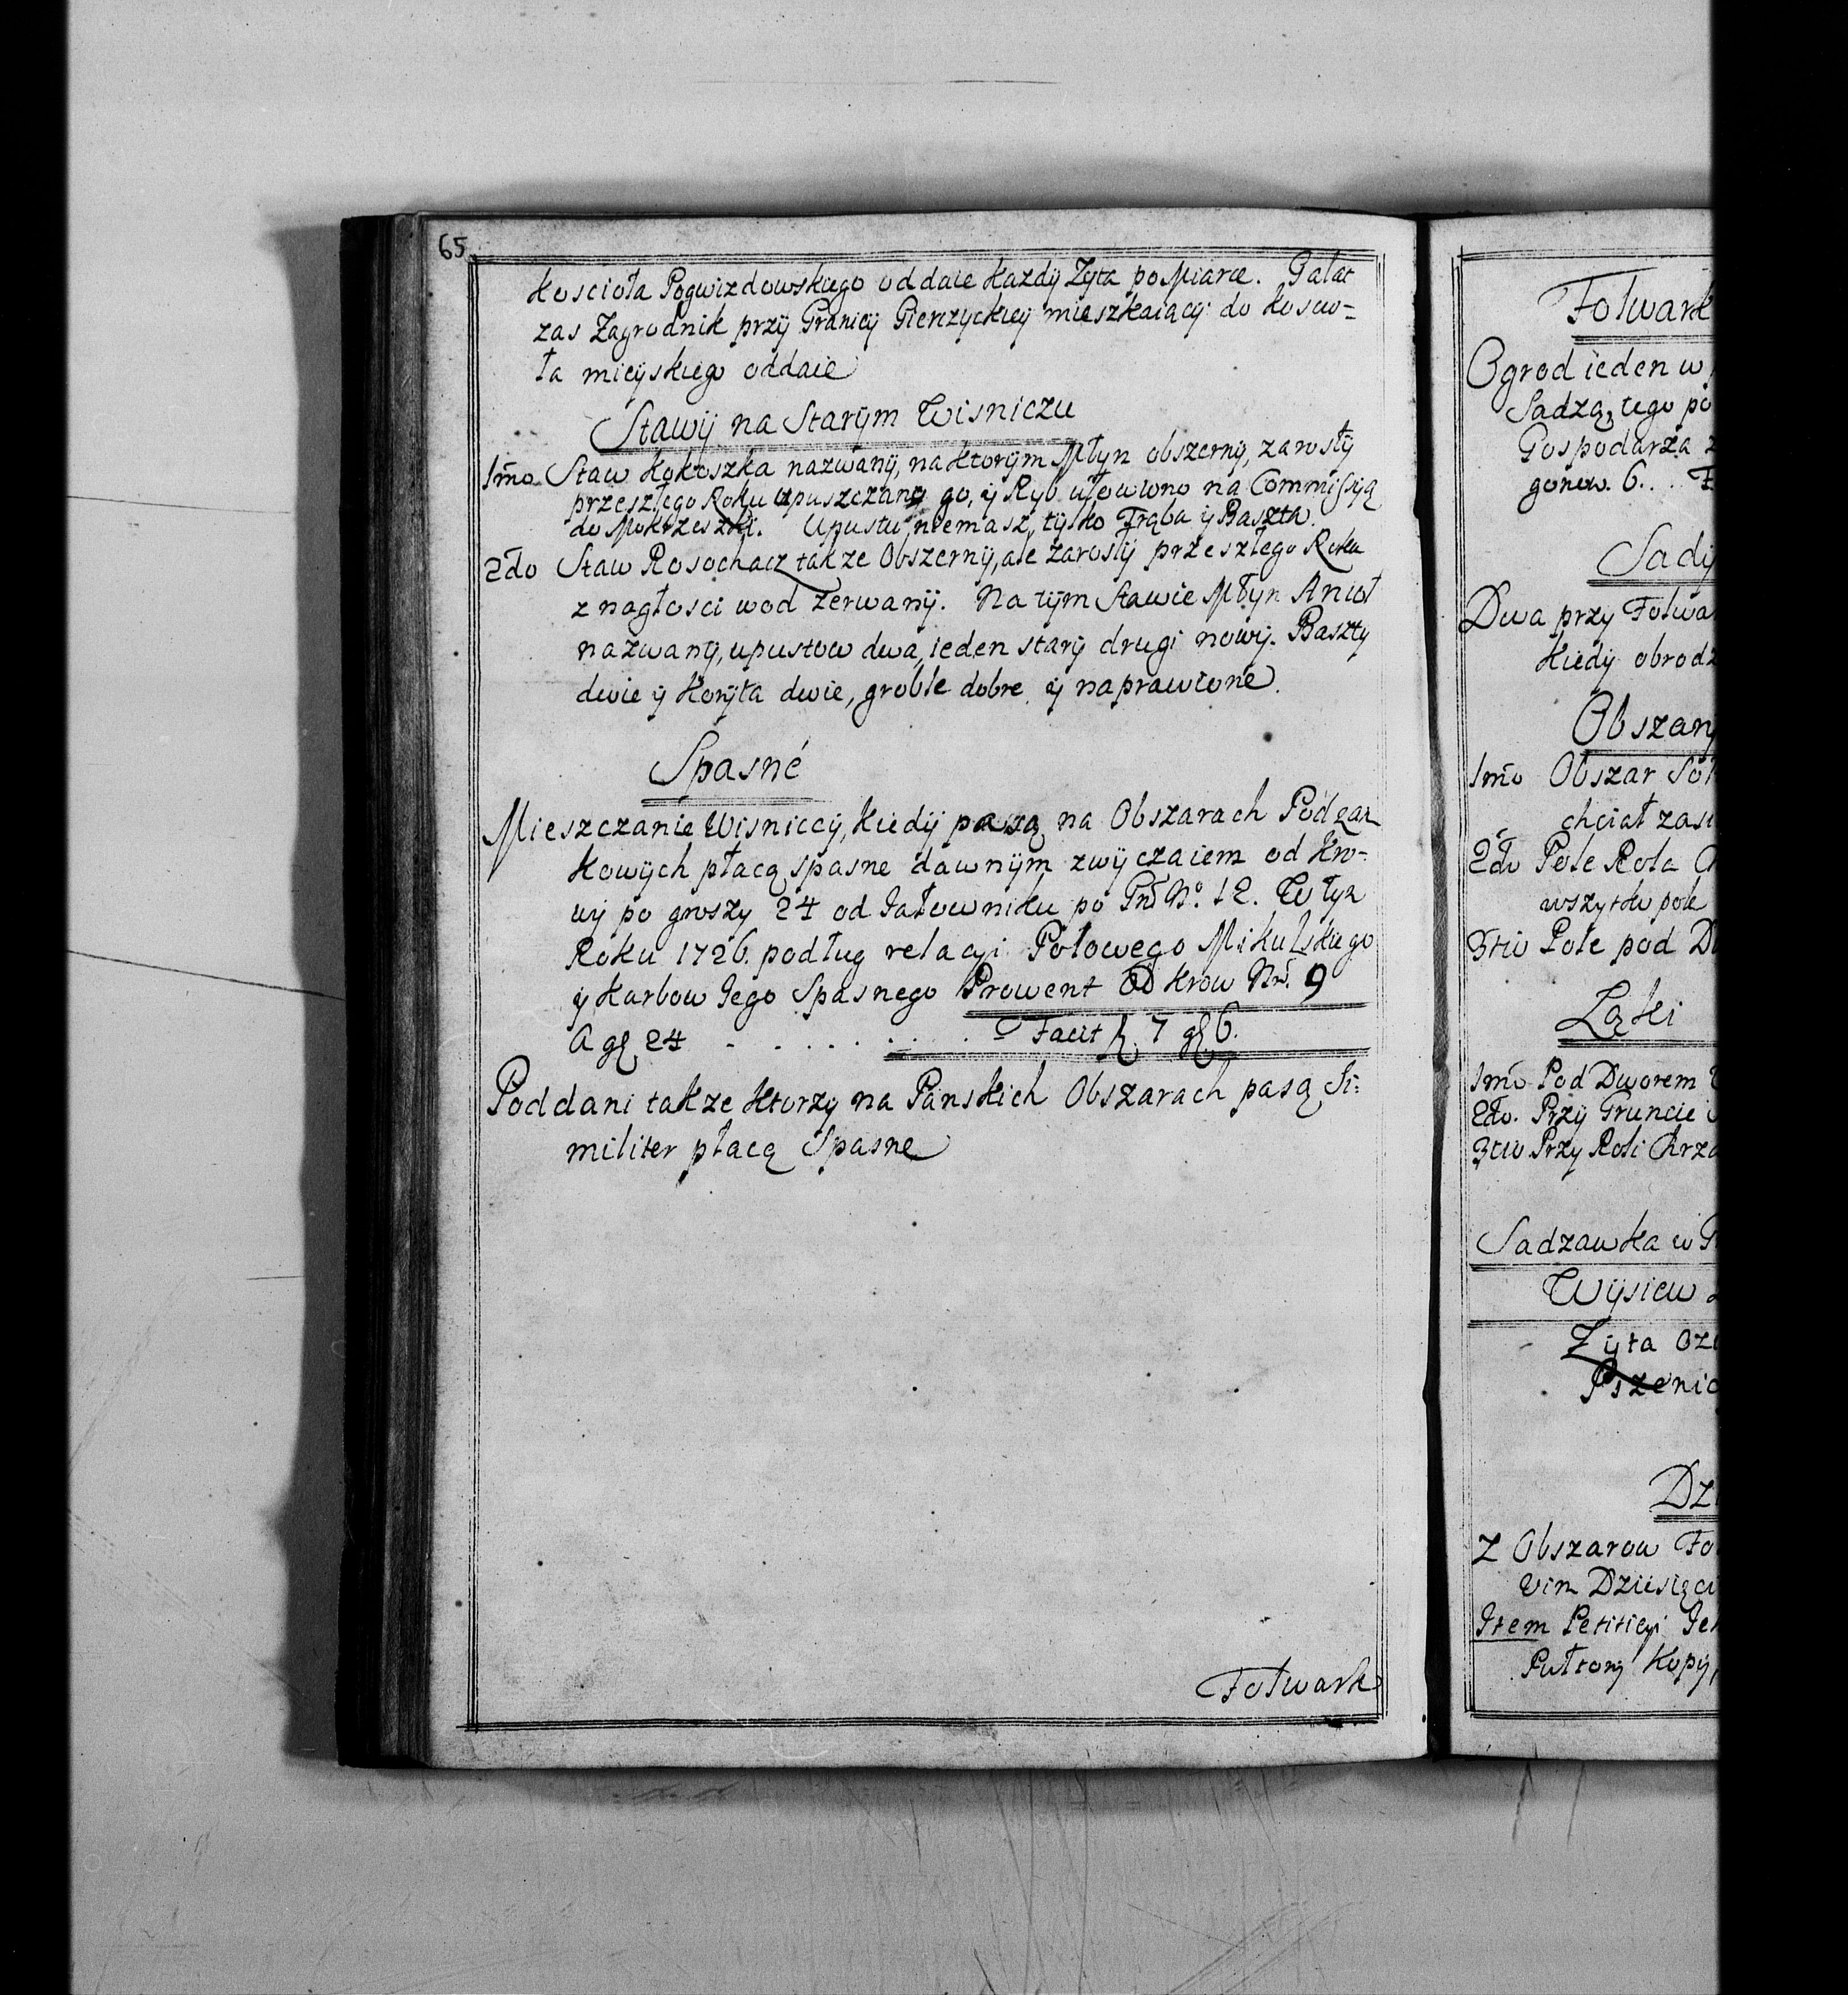 65
Koscioła Pogwizdowskiego oddaie Kazdy Zyta po Miarce. Gałat
zas Zagrodnik przÿ Granicÿ Gierczyckieÿ mieszkaiącÿ do Koscio=
ła mieÿskiego oddaie
Stawÿ na Starÿm Wisniczu
1mo Staw Kokoszka nazwanÿ, na Ktorÿm Młyn obszernÿ, zarosłÿ
przeszłego Roku upuszczano go, ÿ Ryb ułowiono na Commissÿą
do Mokrzeszki. Upustu niemasz, tÿlko Trąba ÿ Baszta.
2do Staw Rosochacz takze Obszernÿ, ale zarosłÿ przeszłego Roku
z nagłosci wod zerwanÿ. Na tÿm Stawie Młyn Anioł
nazwanÿ, upustow dwa, ieden starÿ drugi nowÿ. Basztÿ
dwie ÿ Korÿta dwie, groble dobre ÿ naprawione.
Spasné
Mieszczanie Wisniccÿ, Kiedÿ pasą na Obszarach Podzam
kowÿch płacą spasne dawnÿm zwÿczaiem od Kro=
wÿ po groszy 24 od Jałowniku po Gr No. 12. W tÿm
Roku 1726. podług relacyi Polowego Mikulskiego
ÿ Karbow Jego Spasnego Prowent Od Krow Nro. 9
A gr 24 - . . . . . . . - Facit fl. 7 gr 6.
Poddani takze Ktorzy na Panskich Obszarach pasą Si=
militer płacą Spasne
Folwark
Folwark
Ogrod ieden w
Sadzą, tego po
Gospodarza
gonow. 6. . .
Sadÿ
Dwa przy Folwa
Kiedÿ obrodz
Obszarÿ
1mo Obszar
chciał zasi
2do Pole Rola
wszytko pole
3tio Pole pod
Łąki
1mo Pod Dworem
2do. Przÿ Gruncie
3tio Przy Roli Chrza
Sadzawka w
Wÿsiew
Zÿta Ozi
Pszenic
Dzi
Z Obszarow Fol
vim Dziesięci
Item Petiticyi
Pułtorÿ Kopÿ,